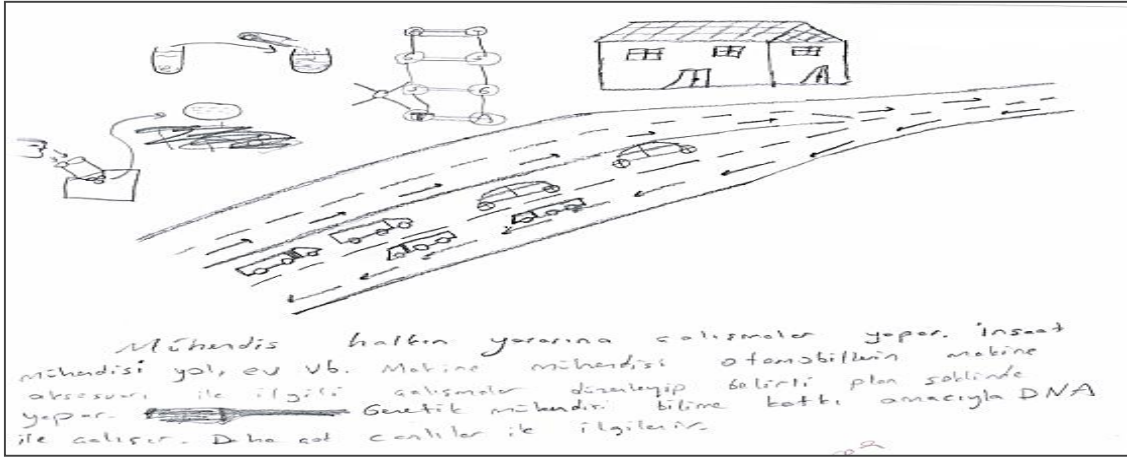 Mühendis halkın yararına çalışmalar yapar. İnşaat
mühendisi yol, ev vb. Makine mühendisi otomobillerin makine
aksesuarı ile ilgili çalışmalar düzenleyip belirli plan şeklinde
yapar. Genetik mühendisi bilime katkı amacıyla DNA
ile çalışır. Daha çok canlılar ile ilgilenir.